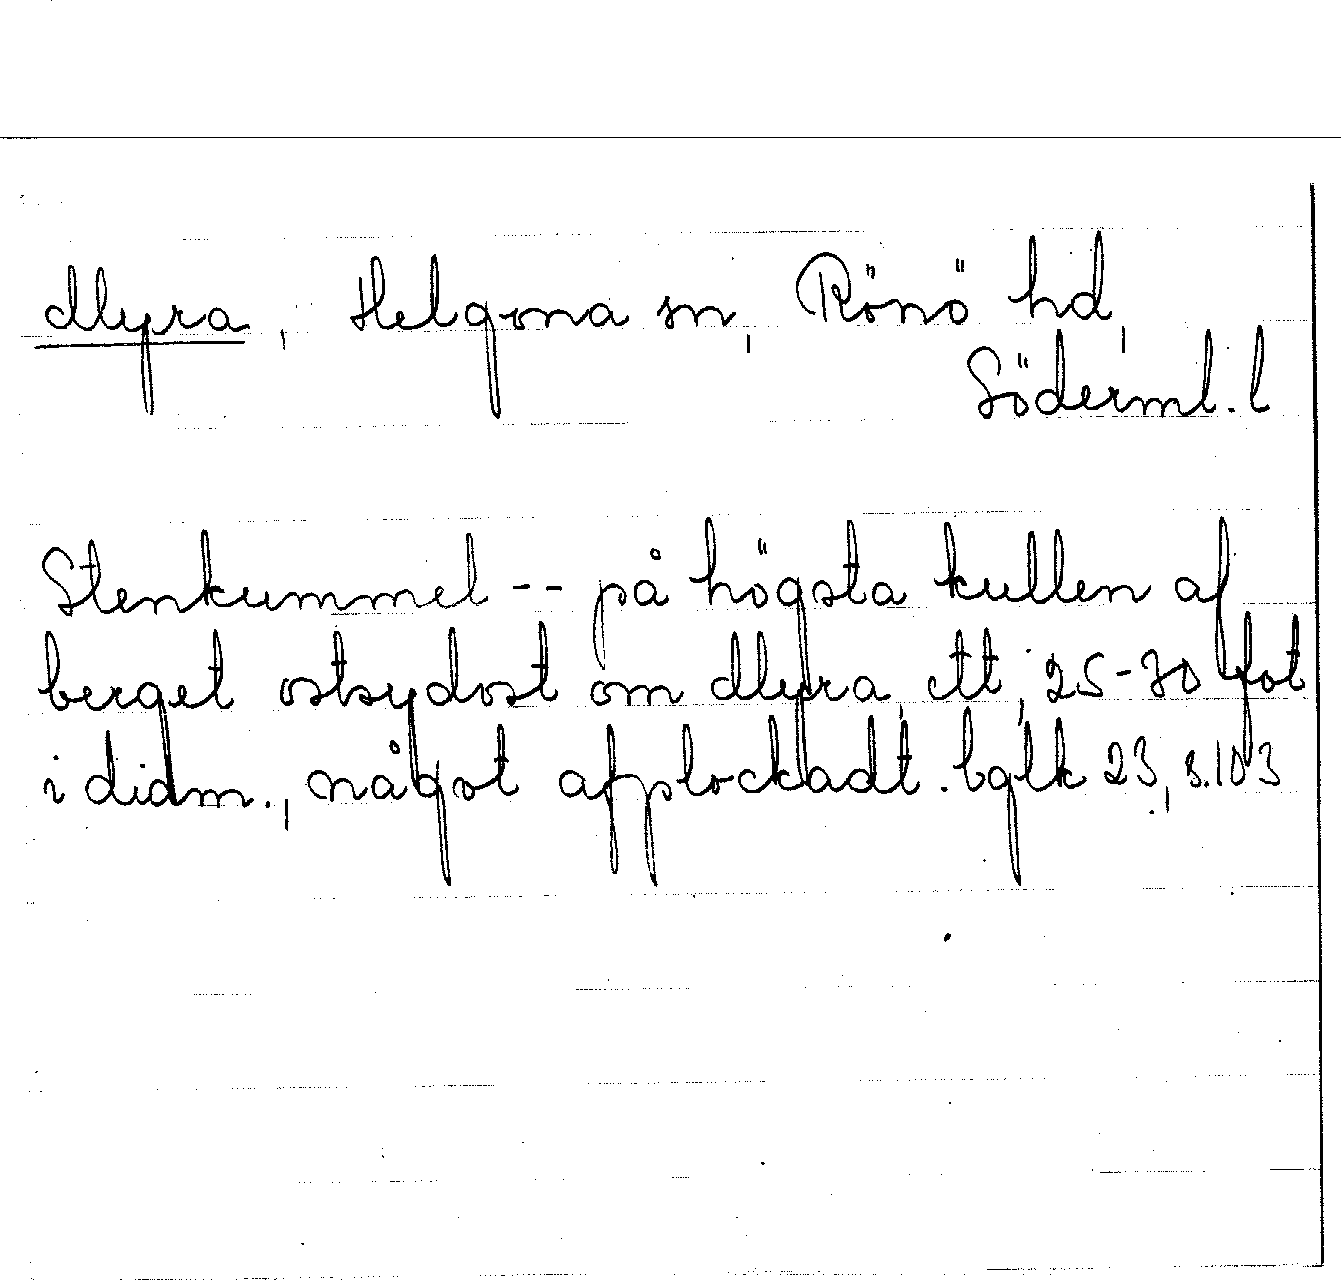 Myra, Helgona sn, Rönö hd,
Söderml. l
Stenkummel -- på högsta kullen af
berget ostsydost om Myra, ett, 25-30 fot
i diam., något afplockadt. bglk 23, s. 103